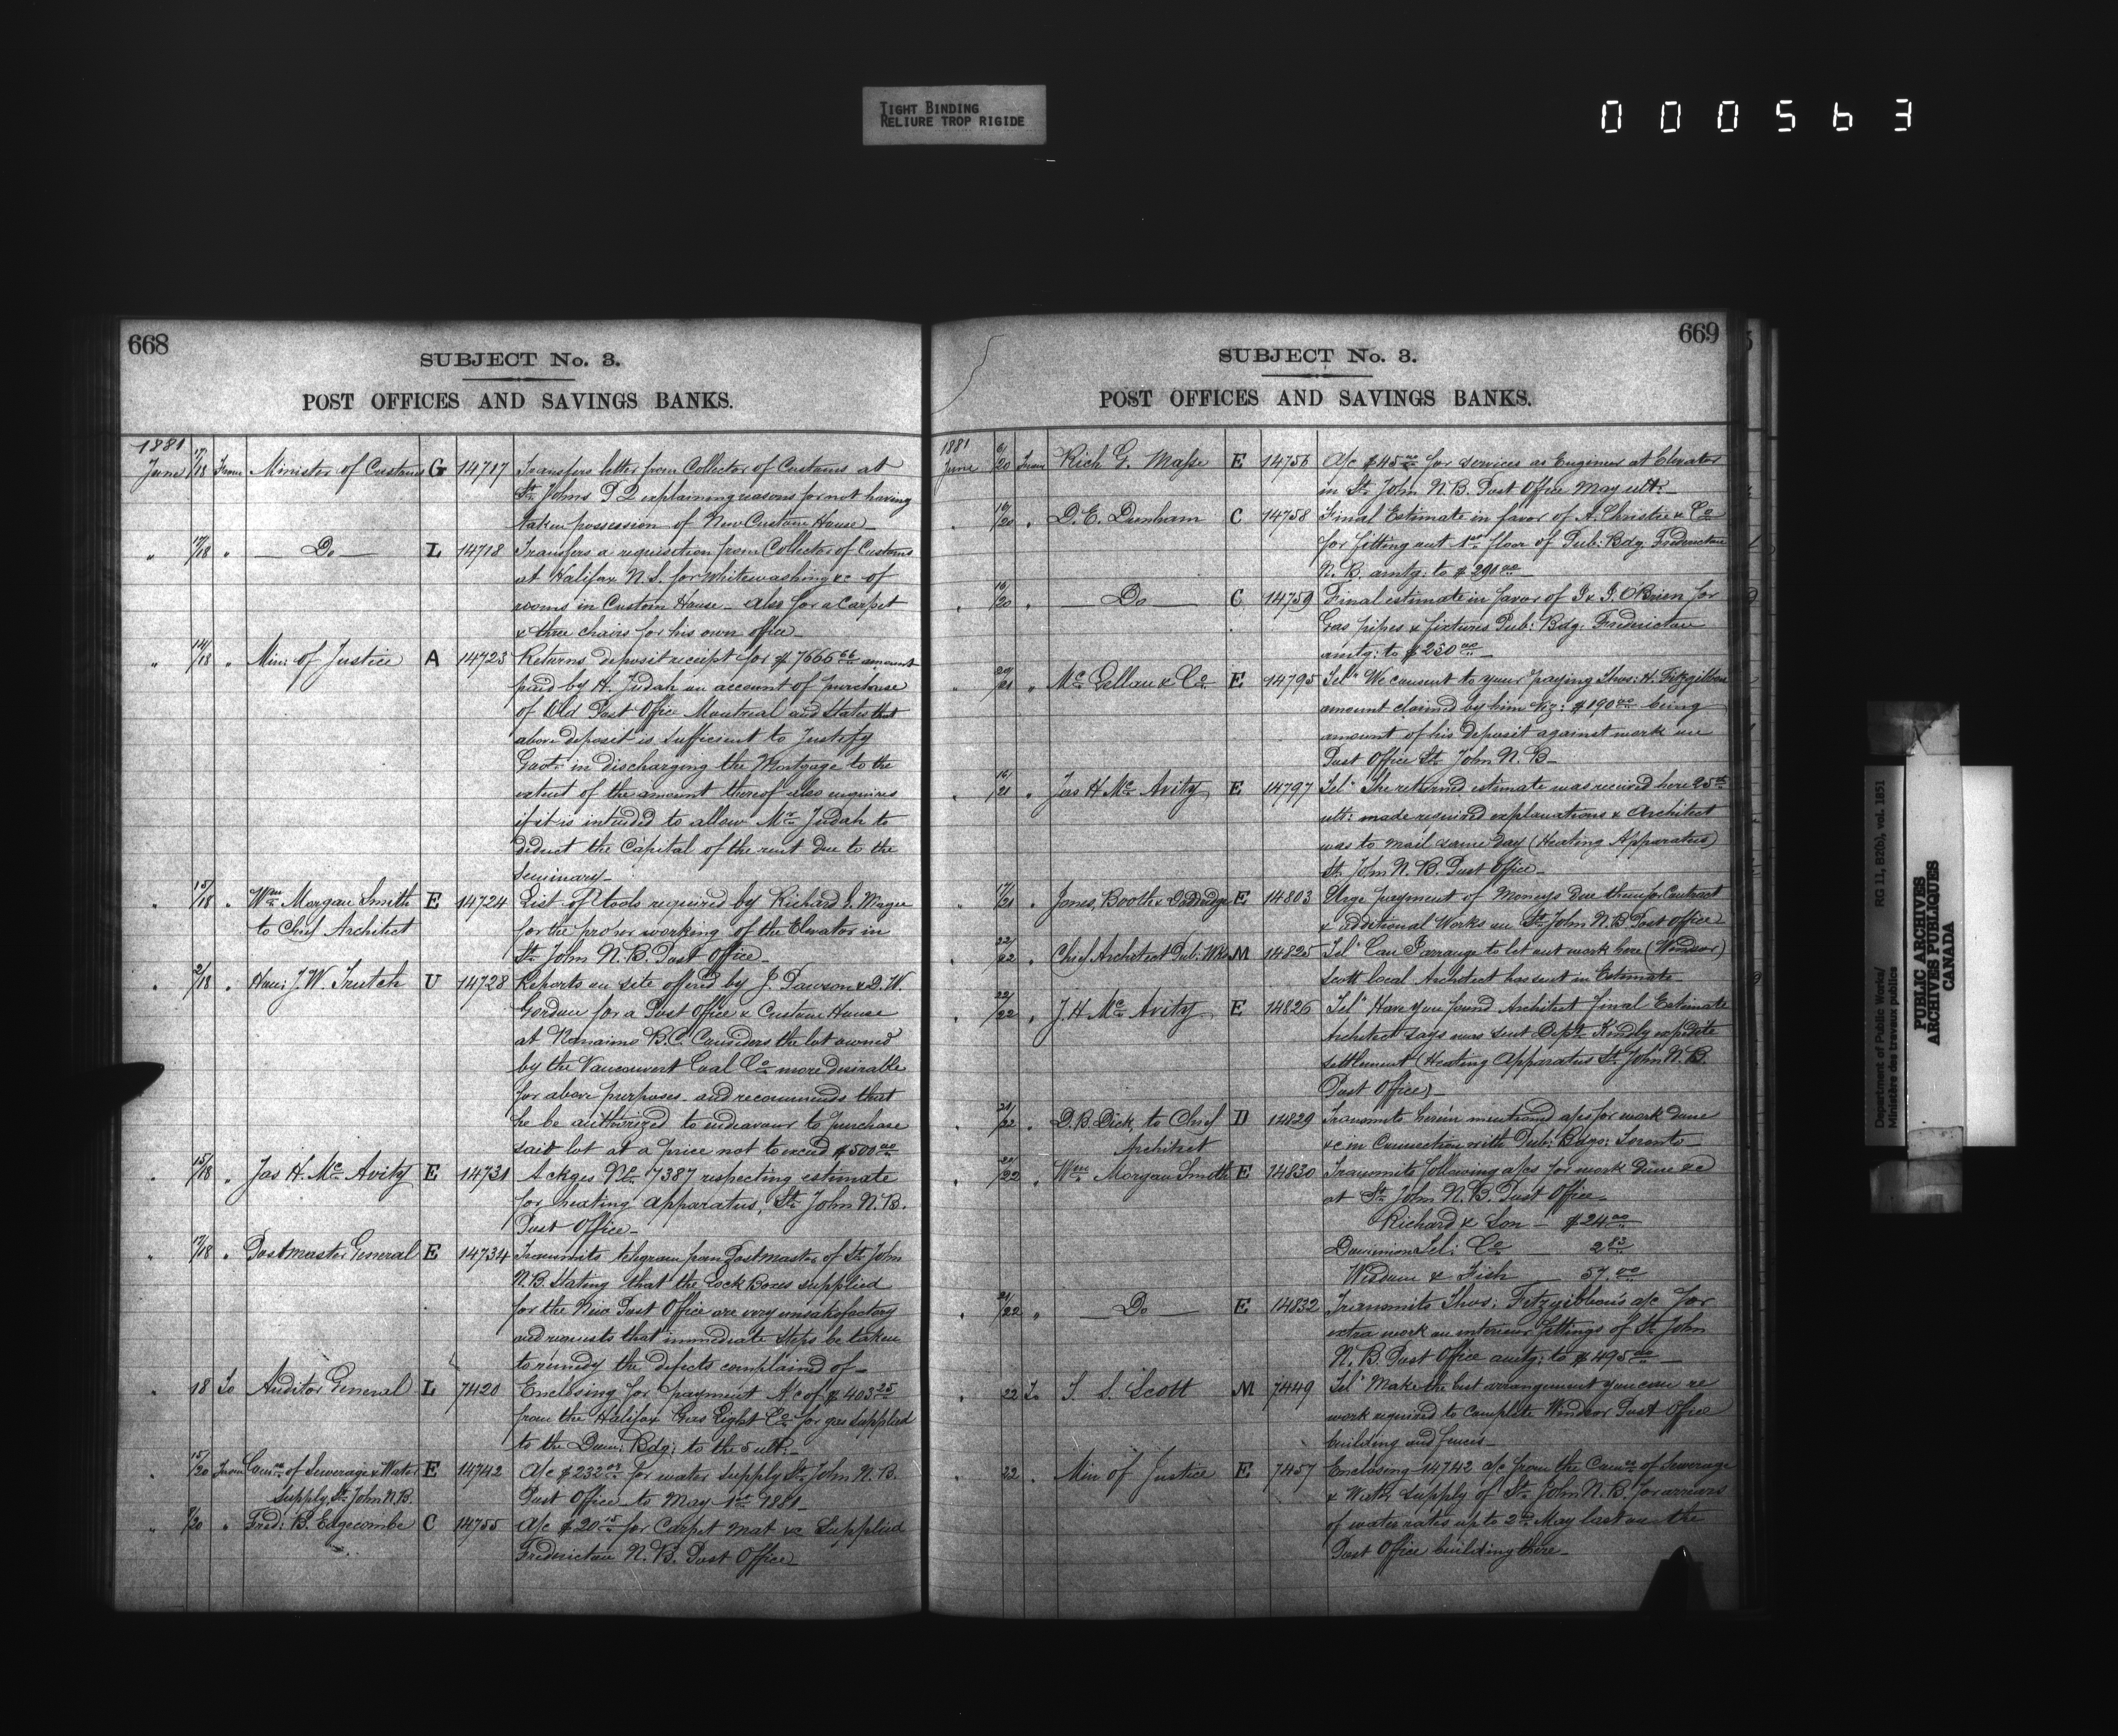 TIGHT BINDING
RELIURE TROP RIGIDE
000563
668
SUBJECT No. 3.
POST OFFICES AND SAVINGS BANKS.
1881
June 17/18 From Minister of Customs G 14717 Transfers letter from Collector of Customs at
St. Johns P Q explaining reasons for not having
taken possession of New Custom House
" 17/18 " Do L 14718 Transfers a requisition from Collector of Customs
at Halifax N.S. for Whitewashing &c of
rooms in Custom House - also for a Carpet
& three chairs for his own office
" 14/18 " Min: of Justice A 14723 Returns deposit receipt for $7666.66 amount
paid by H. Judah on account of purchase
of Old Post Office Montreal and States that
above deposit is sufficient to Justify
Govt. in discharging the Mortgage to the
extent of the amount thereof also enquires
if it is intended to allow Mr Judah to
deduct the Capital of the rent due to the
Seminary
" 15/18 " Wm Morgan Smith E 14724 List of tools required by Richard G. Magee
to Chief Architect for the proper working of the Elevator in
St. John N.B. Post Office
" 2/18 " Hon: J.W. Trutch U 14728 Reports on site offered by J. Pawson & D.W.
Gordon for a Post Office & Custom House
at Nanaimo B.C. Considers the lot owned
by the Vancouvert Coal Co. more desirable
for above purposes and recommends that
he be authorized to endeavour to purchase
said lot at a price not to exceed $500.00
" 15/18 " Jas H. Mc Avity E 14731 Ackges No. 7387 respecting estimate
for heating apparatus, St. John N.B.
Post Office
" 17/18 " Postmaster General E 14734 Transmits telegram from Postmaster of St. John
N.B. Stating that the Lock Boxes supplied
for the New Post Office are very unsatisfactory
and requests that immediate steps be taken
to remedy the defects complained of
" 18 To Auditor General L 7420 Enclosing for payment A/c of $403.25
from the Halifax Gas Light Co. for gas supplied
to the Dom: Bdg: to the 5 ult:
" 15/20 From Comrs of Sewerage & Water E 14742 A/c $232.03 for water supply St. John N.B.
Supply, St. John N.B. Post Office to May 1st 1881
" 9/20 " Fred: B. Edgecombe C 14755 A/c $20.15 for Carpet Mat &c Supplied
Fredericton N.B. Post Office
669
SUBJECT No. 3.
POST OFFICES AND SAVINGS BANKS.
1881
June 6/20 From Rich G. Masse E 14756 A/c $45.00 for services as Engineer at Elevator
in St. John N.B. Post Office May ult:
" 16/20 " D.E. Dunham C 14758 Final Estimate in favor of A. Christie & Co
for fitting out 1st floor of Pub: Bdg. Fredericton
N.B. amtg: to $291.00
" 16/20 " Do C 14759 Final estimate in favor of J & J. O'Brien for
Gas pipes & fixtures Pub: Bdg. Fredericton
amtg: to $230.00
" 20/21 " Mc Lellan & Co. E 14795 Tel" We consent to your paying Thos: H. Fitzgibbon
amount claimed by him viz: $190.00 being
amount of his deposit against work on
Post Office St. John N.B
" 16/21 " Jas H Mc Avity E 14797 Tel" The returned estimate was received here 25th
ult: made required explanations & Architect
was to mail same day (Heating Apparatus)
St. John N.B. Post Office
" 17/21 " Jones, Booth & E 14803 Urge payment of Moneys due them for Contract
& Additional Works on St. John N.B. Post Office
" 22/22 " Chief Architect Pub: Wks M 14825 Tel" Can I arrange to let out work here (Windsor)
Scott local Architect has sent in Estimate
" 22/22 " J.H. Mc Avity E 14826 Tel" Have you found Architect final Estimate
Architect says was sent Dept. Kindly expedite
settlement (Heating Apparatus St. John N.B.
Post Office)
" 21/22 " D.B. Dick, to Chief D 14829 Transmits herein mentioned a/cs for work done
Architect &c in Connection with Pub: Bdgs: Toronto
" 20/22 " Wm Morgan Smith E 14830 Transmits following a/cs for work done &c
at St. John N.B. Post Office
Richard & Son - $24.00
Dominion Tel: Co 2.83
Wisdom & Fish 57.00
" 21/22 " Do E 14832 Transmits Thos: Fitzgibbon's a/c for
extra work on interior fittings of St. John
N.B. Post Office amtg: to $495.00
" 22 To T. S. Scott M 7449 Tel" Make the best arrangement you can re
work required to complete Windsor Post Office
building and fences
" 22 " Min of Justice E 7457 Enclosing 14742 a/c from the Comrs of Sewerage
& Water Supply of St. John N.B. for arrears
of water rates up to 2nd May last on the
Post Office building there
Department of Public Works/ RG 11, B2(b), vol. 1851
Ministère des travaux publics
PUBLIC ARCHIVES
ARCHIVES PUBLIQUES
CANADA